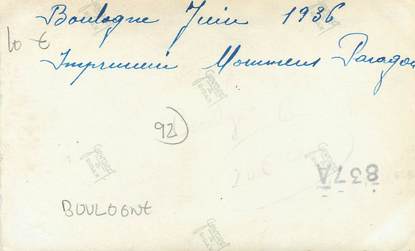 Boulogne Juin 1936
10 €
Imprimerie Mommens Paragon
92
837A
BOULOGNE